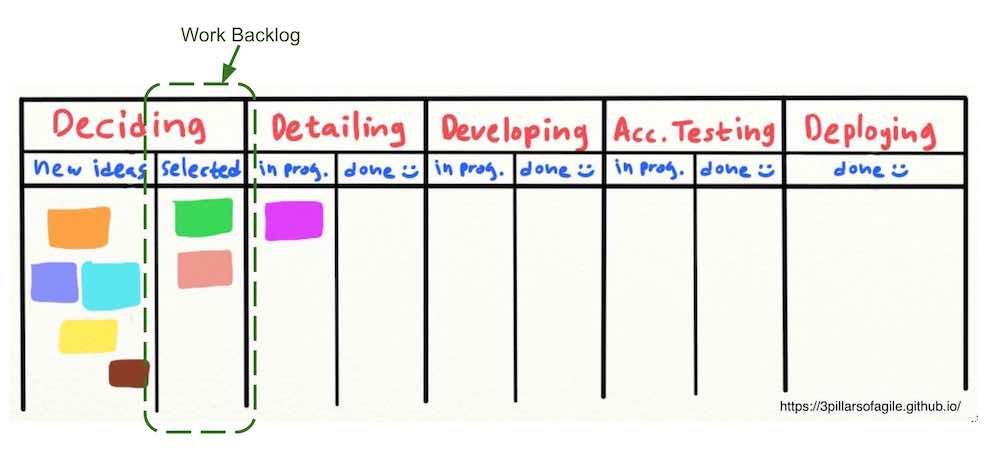 Work Backlog
Deciding Detailing Developing Acc. Testing Deploying
new ideas selected in prog. done in prog. done in prog. done done
https://3pillarsofagile.github.io/